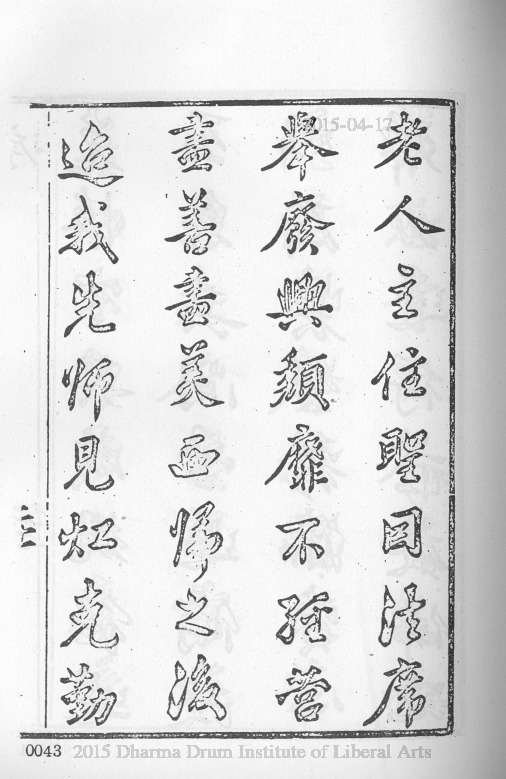 老人主住聖因法席
舉廢興頹靡不經營
盡善盡美西歸之後
迨我先師見缸克勤
2015-04-17
0043 2015 Dharma Drum Institute of Liberal Arts